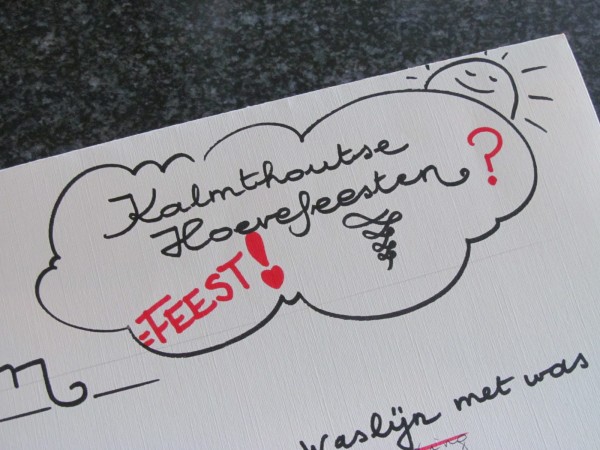 Kalmthoutse
Hoevefeesten ?
=FEEST!
Waslijn met was